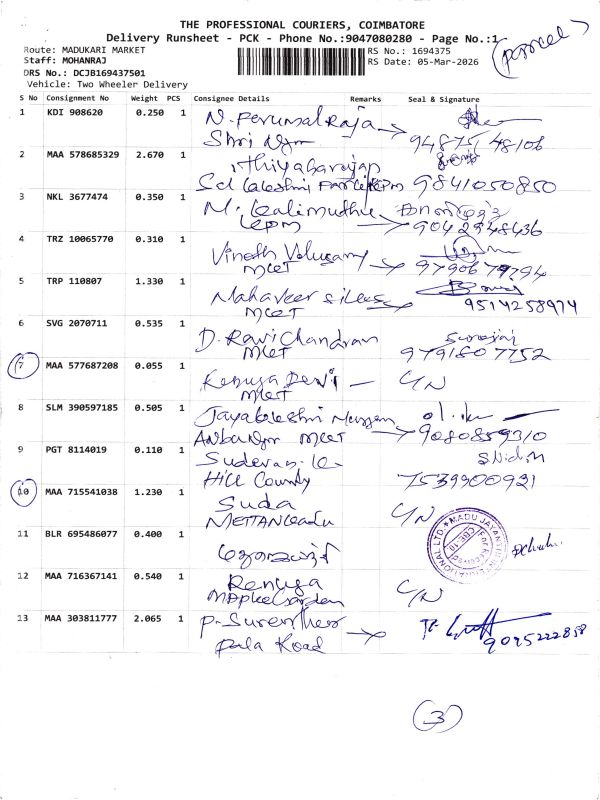 THE PROFESSIONAL COURIERS, COIMBATORE
Delivery Runsheet - PCK - Phone No.:9047080280 - Page No.:1
(parcel)
Route: MADUKARI MARKET
RS No.: 1694375
Staff: MOHANRAJ
RS Date: 05-Mar-2026
DRS No.: DCJB169437501
Vehicle: Two Wheeler Delivery
S No Consignment No Weight PCS Consignee Details Remarks Seal & Signature
1 KDI 908620 0.250 1 N. Perumal Raja
Shri Ngr 94875 48106
2 MAA 578685329 2.670 1 Thiyabarajan
9841050850
3 NKL 3677474 0.350 1 M. Kalimuthu
9042948436
4 TRZ 10065770 0.310 1 Vinoth
MCET 9790679794
5 TRP 110807 1.330 1 Mahaveer
MCET 9514258974
6 SVG 2070711 0.535 1 D. Ravi Chandran
MCET 9791807752
7 MAA 577687208 0.055 1 Renuga Devi - C/N
MCET
8 SLM 390597185 0.505 1
MCET 9080859310
9 PGT 8114019 0.110 1 Sudevan. K
Hill County 7539900921
10 MAA 715541038 1.230 1 Suda C/N
11 BLR 695486077 0.400 1
12 MAA 716367141 0.540 1 Renuga C/N
Garden
13 MAA 303811777 2.065 1 P. Surendher
Pala Road 9095222858
(3)